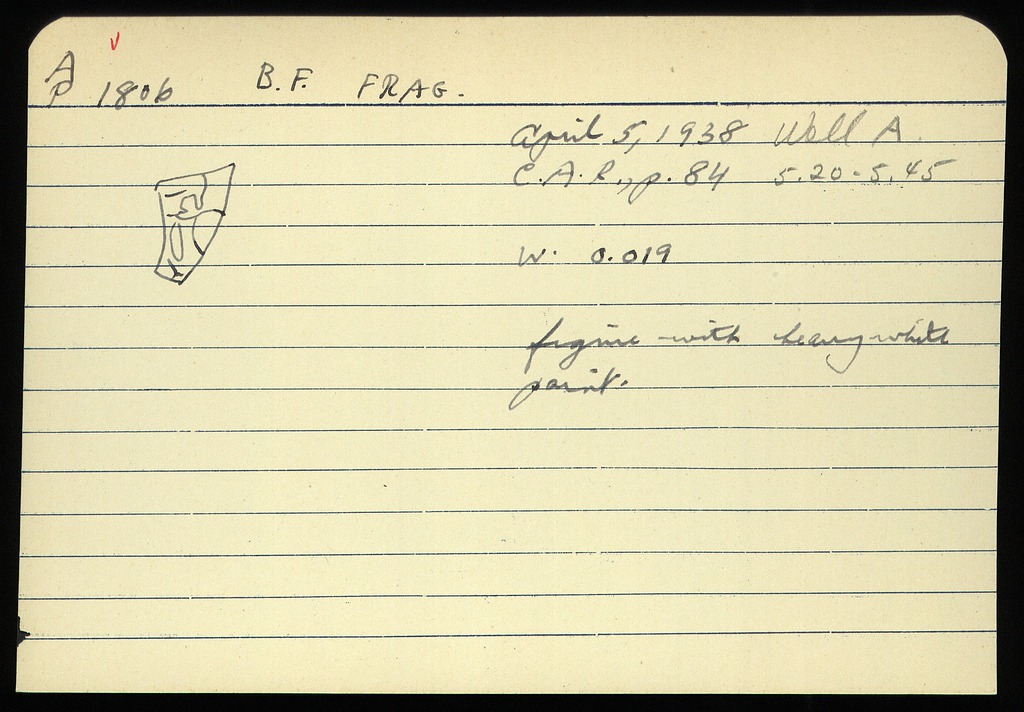 A
P 1806 B.F. FRAG.
April 5, 1938 Well A.
C.A.R., p. 84 5.20-5.45
W. 0.019
figure with heavy white
paint.